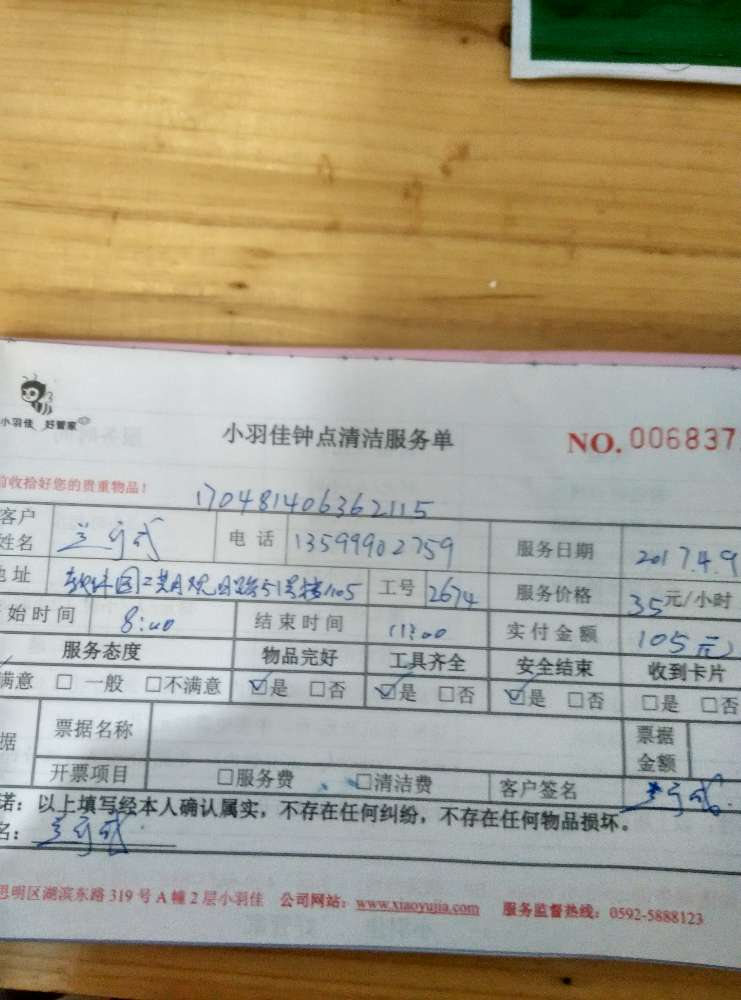 小羽佳 好管家
小羽佳钟点清洁服务单
NO. 006837
前收拾好您的贵重物品!
170481406362115
客户姓名 电话 13599902759 服务日期 2017.4.9
地址 软件园二期观日路51号楼105 工号 2674 服务价格 35元/小时
开始时间 8:00 结束时间 11:00 实付金额 105元
服务态度 物品完好 工具齐全 安全结束 收到卡片
满意 □ 一般 □不满意 ☑是 □否 ☑是 □否 ☑是 □否 □是 □否
据 票据名称 票据金额
开票项目 □服务费 □清洁费 客户签名
诺:以上填写经本人确认属实,不存在任何纠纷,不存在任何物品损坏。
名:
思明区湖滨东路 319 号 A 幢 2 层小羽佳 公司网站:www.xiaoyujia.com 服务监督热线:0592-5888123